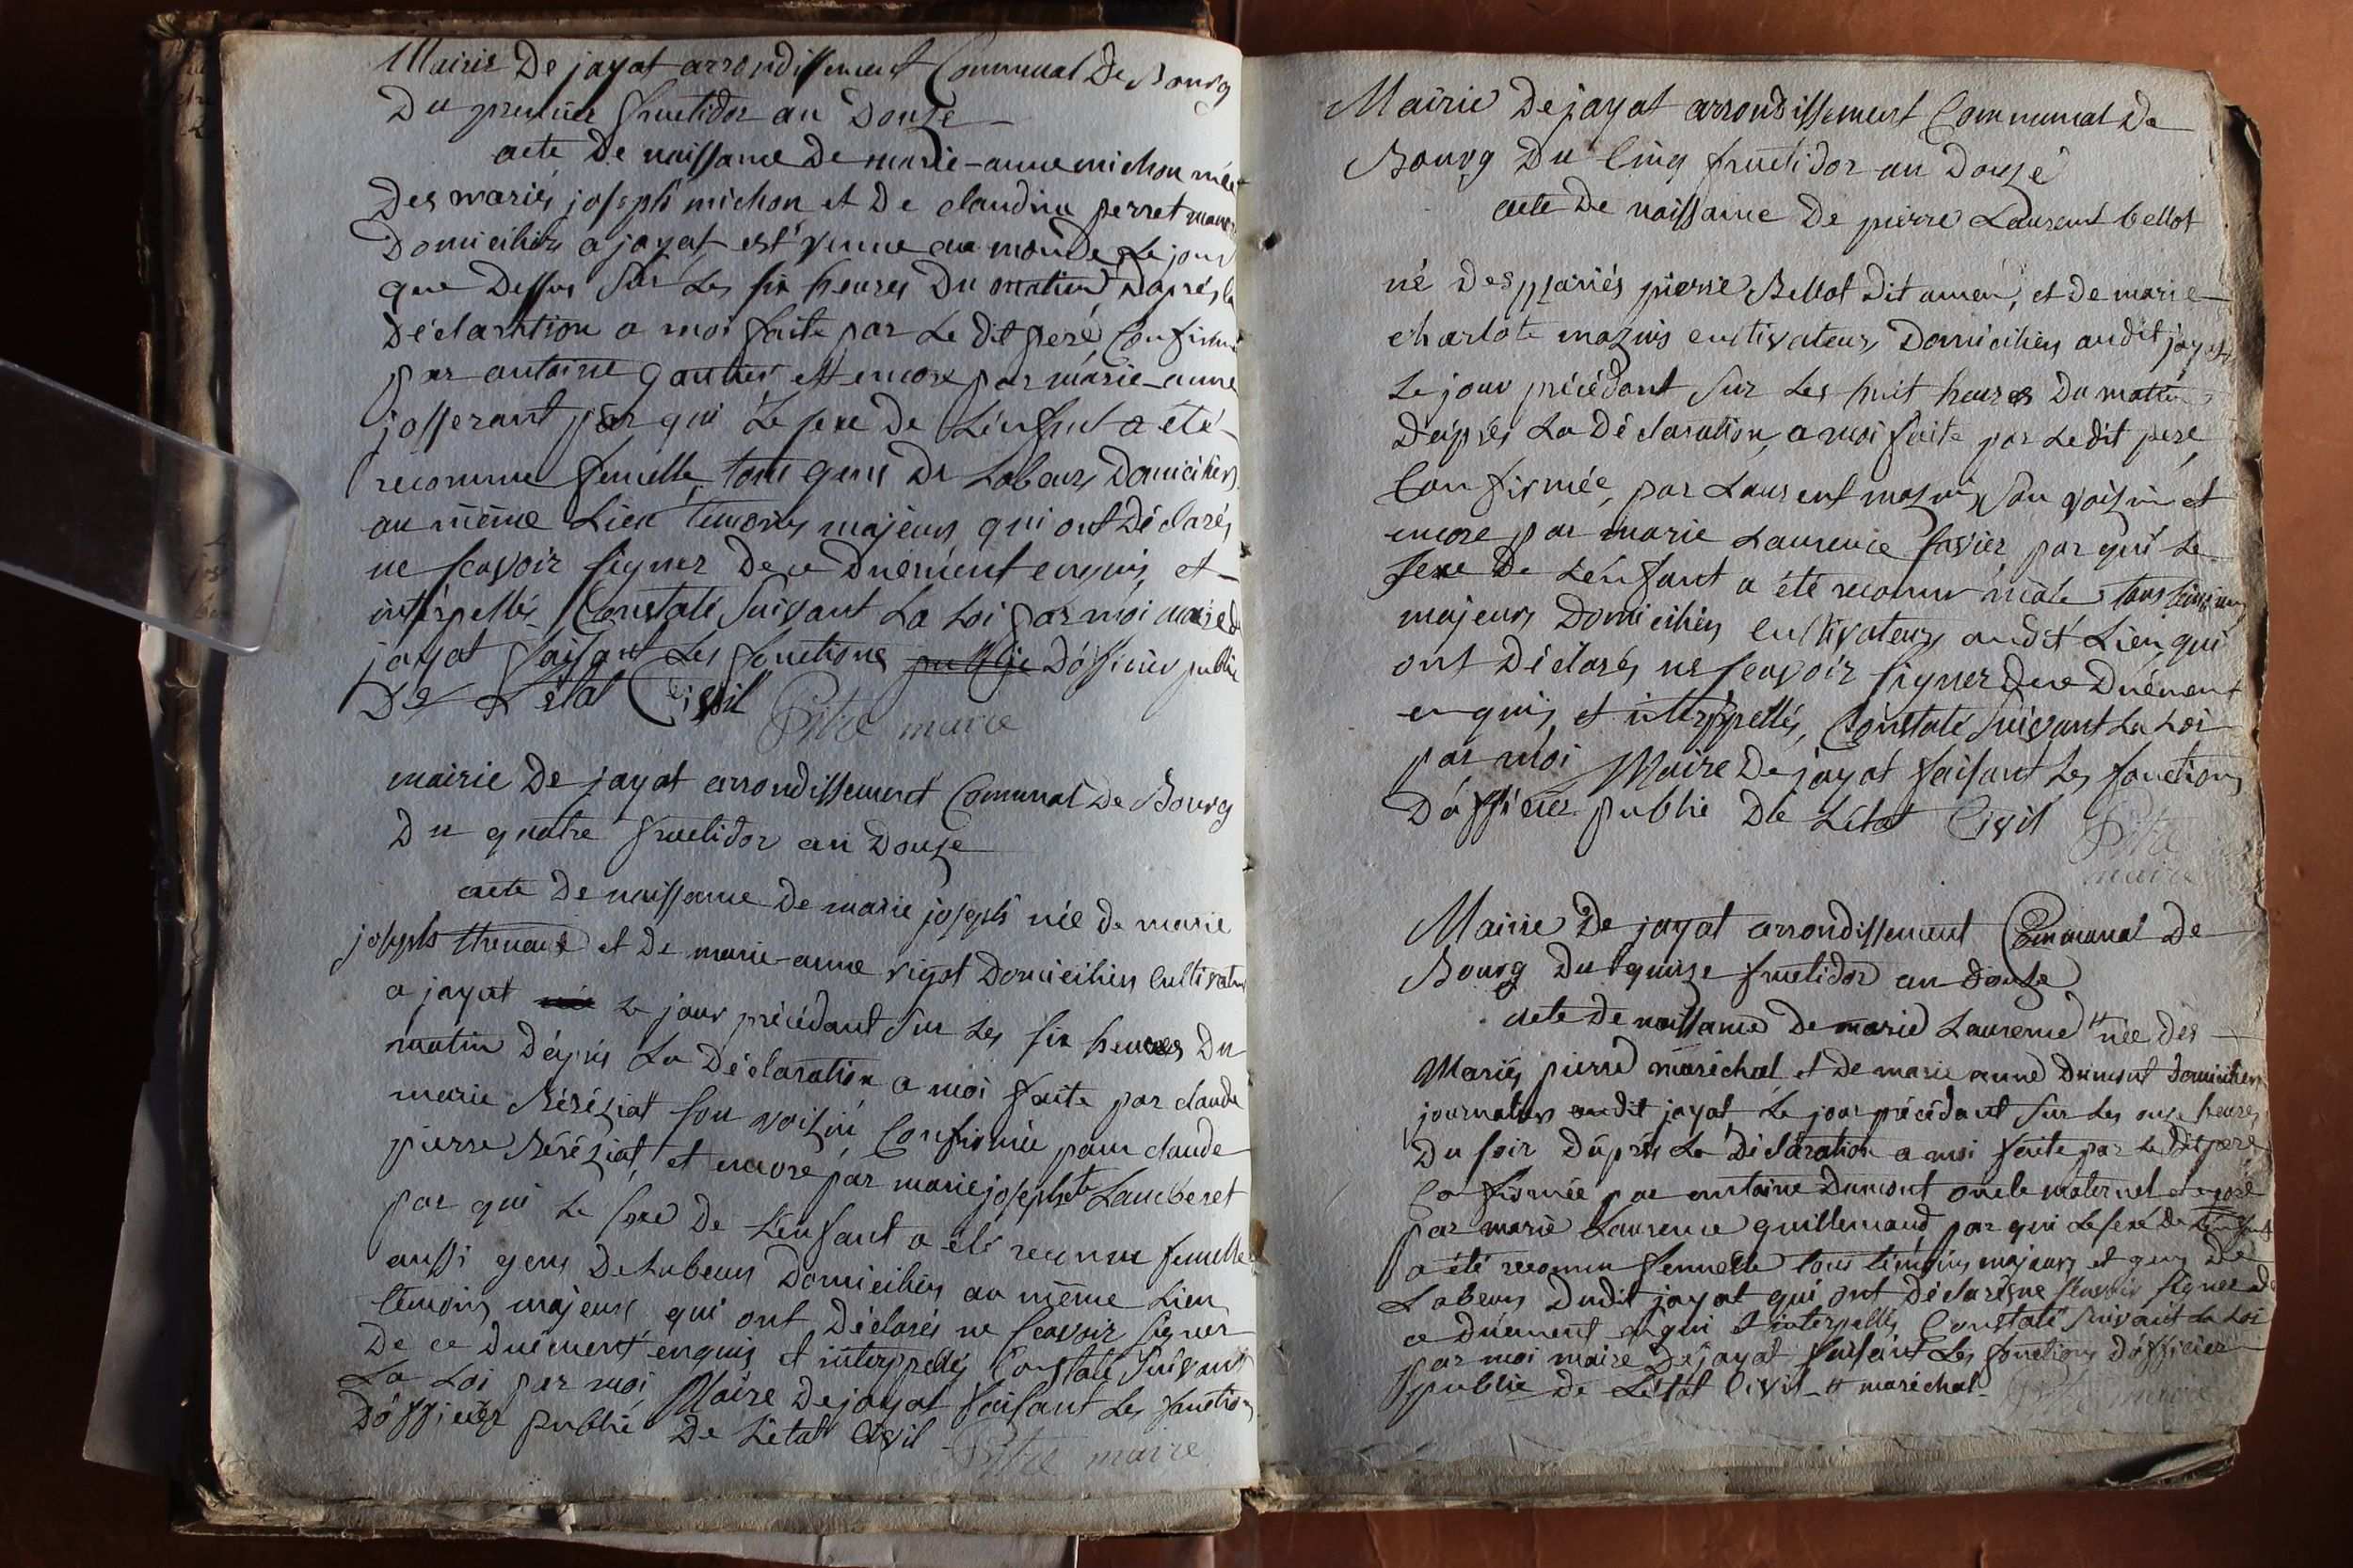 Mairie De jayat arrondissement Communal De Bourg
Du premier fructidor an Douze
acte De naissance De marie-anne michon née
Des mariés joseph michon et De claudine perret
Domiciliés a jayat est venue au monde Le jour
que Dessus sur Les six heures Du matin Daprès la
Déclaration a moi faite par Le dit pere Confirmé
par antoine gauthier et encore par marie-anne
josserant par qui Le sexe De L'énfant a été
reconnue femelle, tous gens De Labeurs Domiciliés
au même Lieu temoins majeurs qui ont Déclarés
ne scavoir signer De ce Duëment enquis et
intérpellés Constaté suivant La Loi par moi maire de
jayat faisant Les fonctions public D'officier public
De L'état Civil Pitre maire
mairie De jayat arrondissement Communal De Bourg
Du quatre fructidor an Douze
acte De naissance De marie joseph née de marie
joseph thenaud et De marie-anne rigot Domiciliés Cultivateurs
a jayat Le jour précédant sur Les six heures Du
matin D'après La Déclaration a moi faite par claude
marie Béréziat son voizin Confirmée pour claude
pierre Béréziat, et encore par marie josephte Lamberet
par qui Le sexe De L'énfant a été reconnu femelle
aussi gens De Labeurs Domiciliés au même Lieu
temoins majeurs qui ont Déclarés ne scavoir signer
De ce Duëment enquis et interppellés Constaté suivant
La Loi par moi Maire De jayat faisant Les fonctions
D'officier public De L'état Civil Pitre maire
Mairie De jayat arrondissement Communal De
Bourg Du Cinq fructidor an Douze
acte De naissance De pierre Laurent bellot
né Des mariés pierre Bellot Dit amen, et De marie
charlote mazuis cultivateurs Domiciliés audit jayat
Le jour précédant sur Les huit heures Du matin
D'après La Déclaration a moi faite par Le dit pere
Confirmée, par Laurent mazuis son voizin et
encore par marie Laurence favier par qui Le
sexe De L'énfant a été reconnu mâle tous temoins
majeurs Domiciliés cultivateurs audit Lieu, qui
ont Déclarés ne scavoir signer De ce Duëment
enquis, et interppellés, Constaté suivant La Loi
par moi Maire De jayat faisant Les fonctions
D'officier public De L'état Civil Pitre
maire
Mairie De jayat arrondissement Communal De
Bourg Du quinze fructidor an douze
acte De naissance De marie Laurence # née des
Mariés pierre maréchal et De marie anne Dumont domiciliés
journaliers audit jayat Le jour précédant sur Les onze heures
Du soir D'après La Déclaration a moi faite par Le Dit pere
Confirmée par antoine Dumont oncle maternel et encore
par marie Laurence guillemaud par qui Le sexe De L'énfant
a été reconnu femelle tous témoins majeurs et gens De
Labeurs Dudit jayat qui ont Déclarés ne scavoir signer de
ce Duëment enquis et interpellés Constaté suivant La Loi
par moi maire De jayat faisant Les fonctions D'officier
public De L'état Civil # maréchal Pitre maire